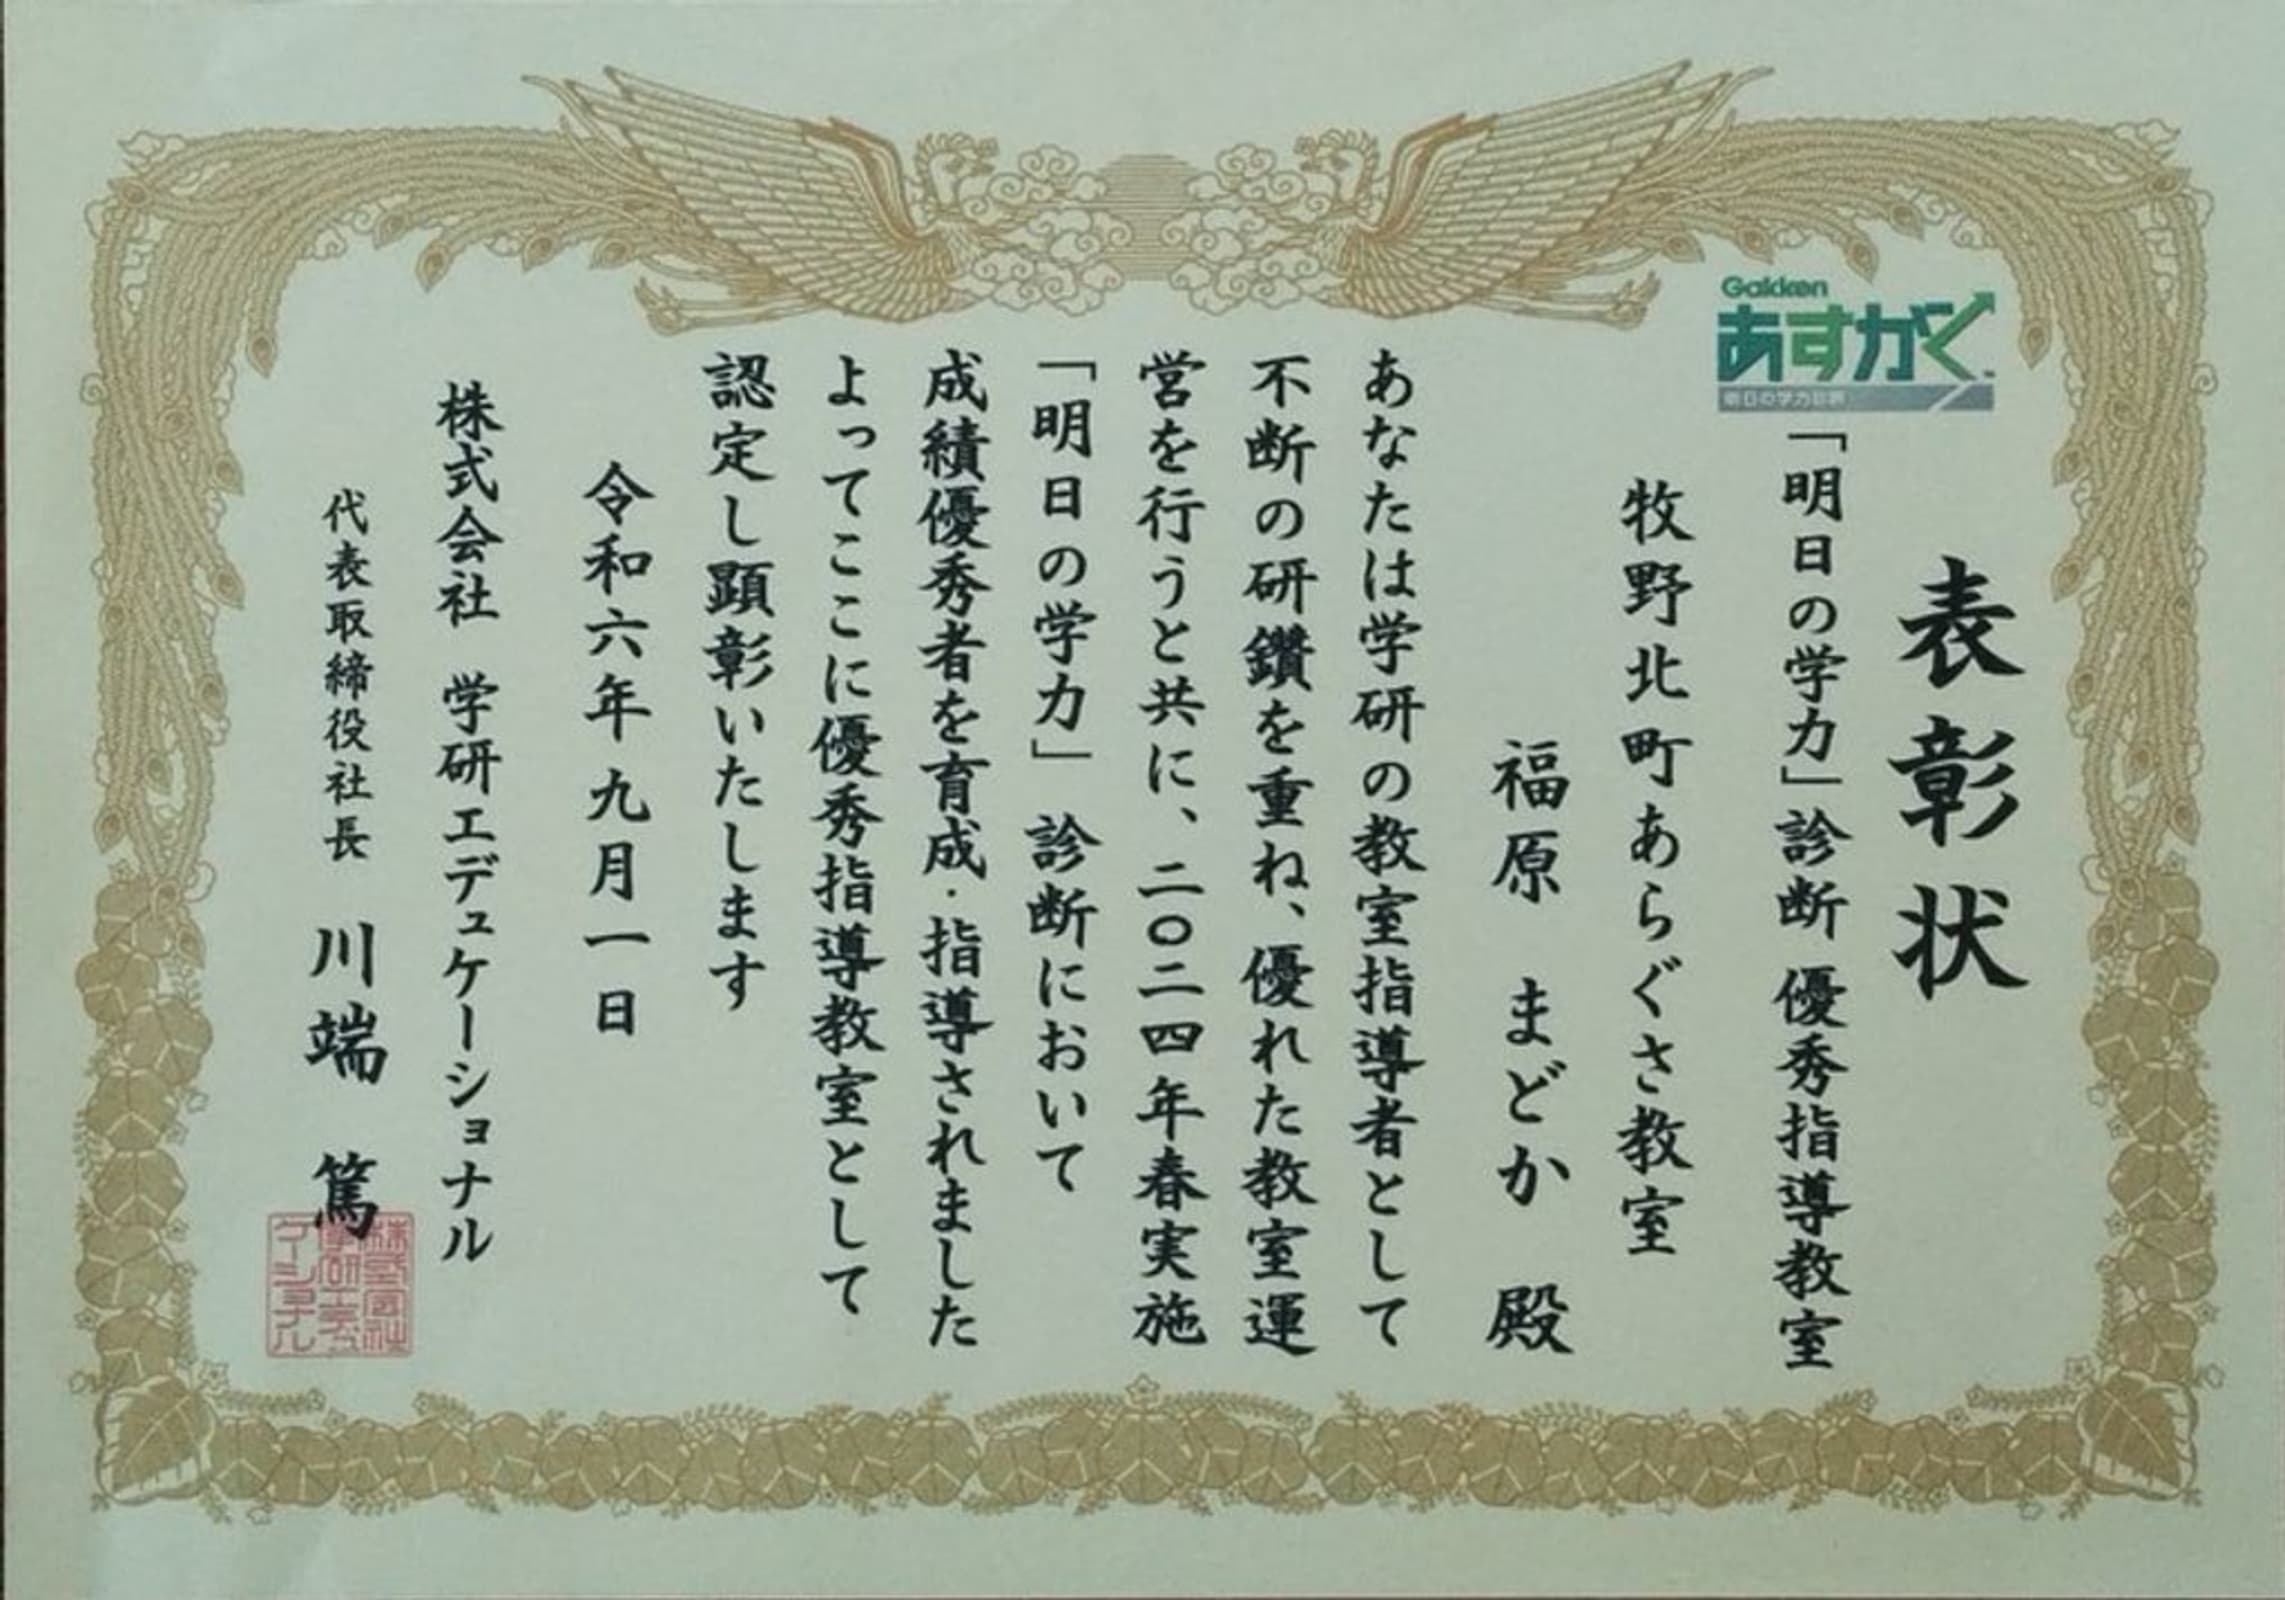 表彰状
Gakken
あすがく
明日の学力診断
「明日の学力」診断 優秀指導教室
牧野北町あらぐさ教室
福原 まどか 殿
あなたは学研の教室指導者として
不断の研鑽を重ね、優れた教室運
営を行うと共に、二〇二四年春実施
「明日の学力」診断において
成績優秀者を育成・指導されました
よってここに優秀指導教室として
認定し顕彰いたします
令和六年九月一日
株式会社 学研エデュケーショナル
代表取締役社長 川端 篤
株式会社
学研エデュ
ケーショナル